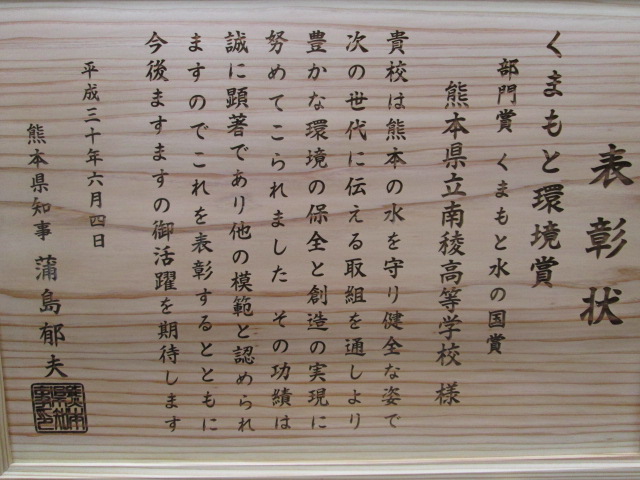 表彰状
くまもと環境賞
部門賞 くまもと水の国賞
熊本県立南稜高等学校 様
貴校は熊本の水を守り健全な姿で
次の世代に伝える取組を通しより
豊かな環境の保全と創造の実現に
努めてこられました その功績は
誠に顕著であり他の模範と認められ
ますのでこれを表彰するとともに
今後ますますの御活躍を期待します
平成三十年六月四日
熊本県知事 蒲島郁夫